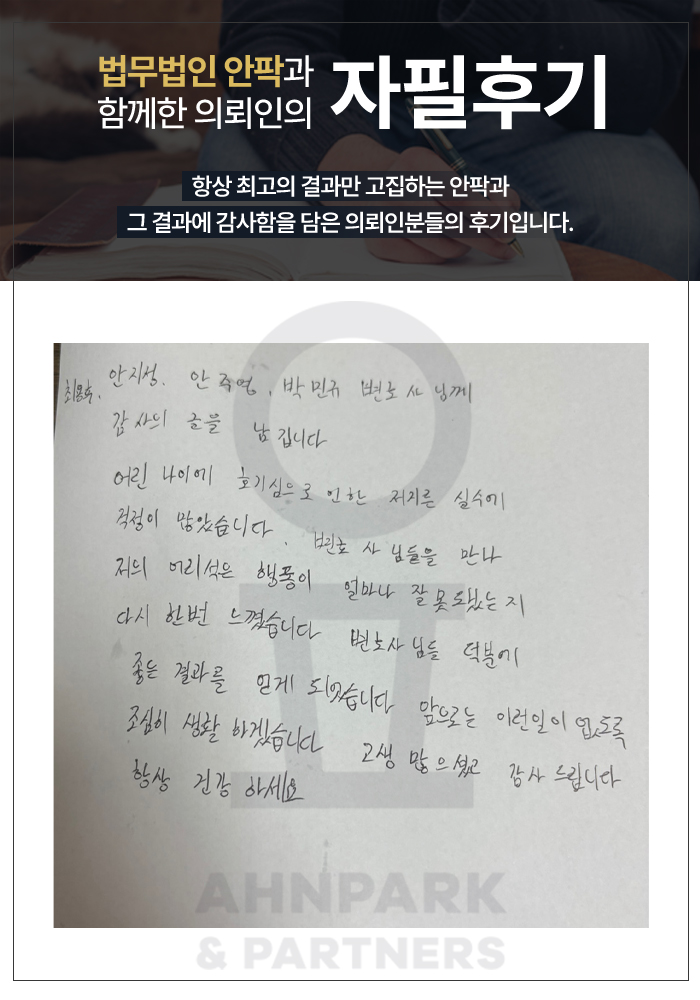 법무법인 안팍과
함께한 의뢰인의
자필후기
항상 최고의 결과만 고집하는 안팍과
그 결과에 감사함을 담은 의뢰인분들의 후기입니다.
안지성, 안주영, 박민규 변호사님께
감사의 글을 남깁니다
어린 나이에 호기심으로 인한 저지른 실수에
걱정이 많았습니다. 변호사님들을 만나
저의 어리석은 행동이 얼마나 잘못됐는지
다시 한번 느꼈습니다 변호사님들 덕분에
좋은 결과를 얻게 되었습니다 앞으로는 이런일이 없도록
조심히 생활 하겠습니다 고생 많으셨고 감사드립니다
항상 건강하세요
AHNPARK
& PARTNERS